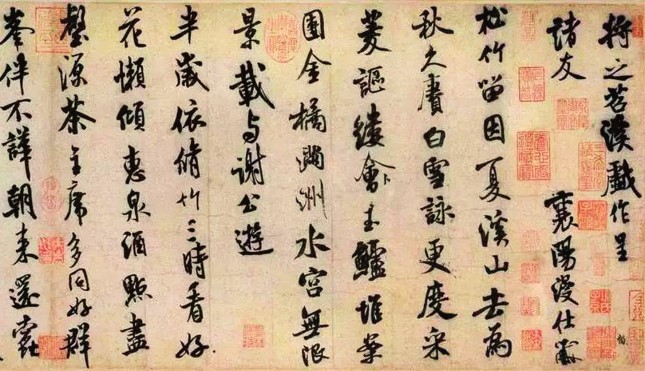 將之苕溪戲作呈
諸友
襄陽漫仕黻
松竹留因夏溪山去為
秋久賡白雪詠更度采
菱謳縷會玉鱸堆案
團金橘滿洲水宮無限
景載与謝公遊
半歲依脩竹三時看好
花懶傾惠泉酒點盡
壑源茶主席多同好群
峯伴不譁朝來還蠹